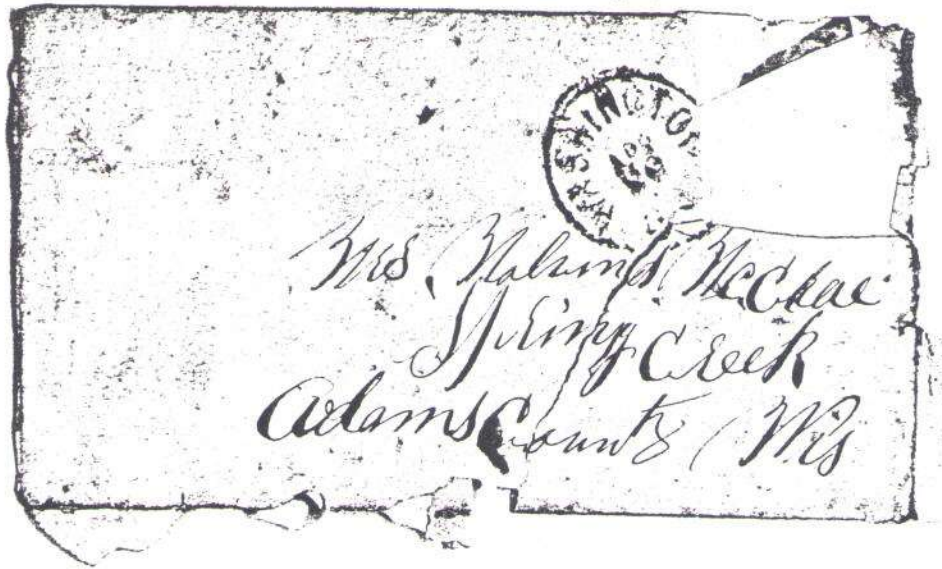 WASHINGTON
Mrs. Nelson McCrae
Spring Creek
Adams County Wis